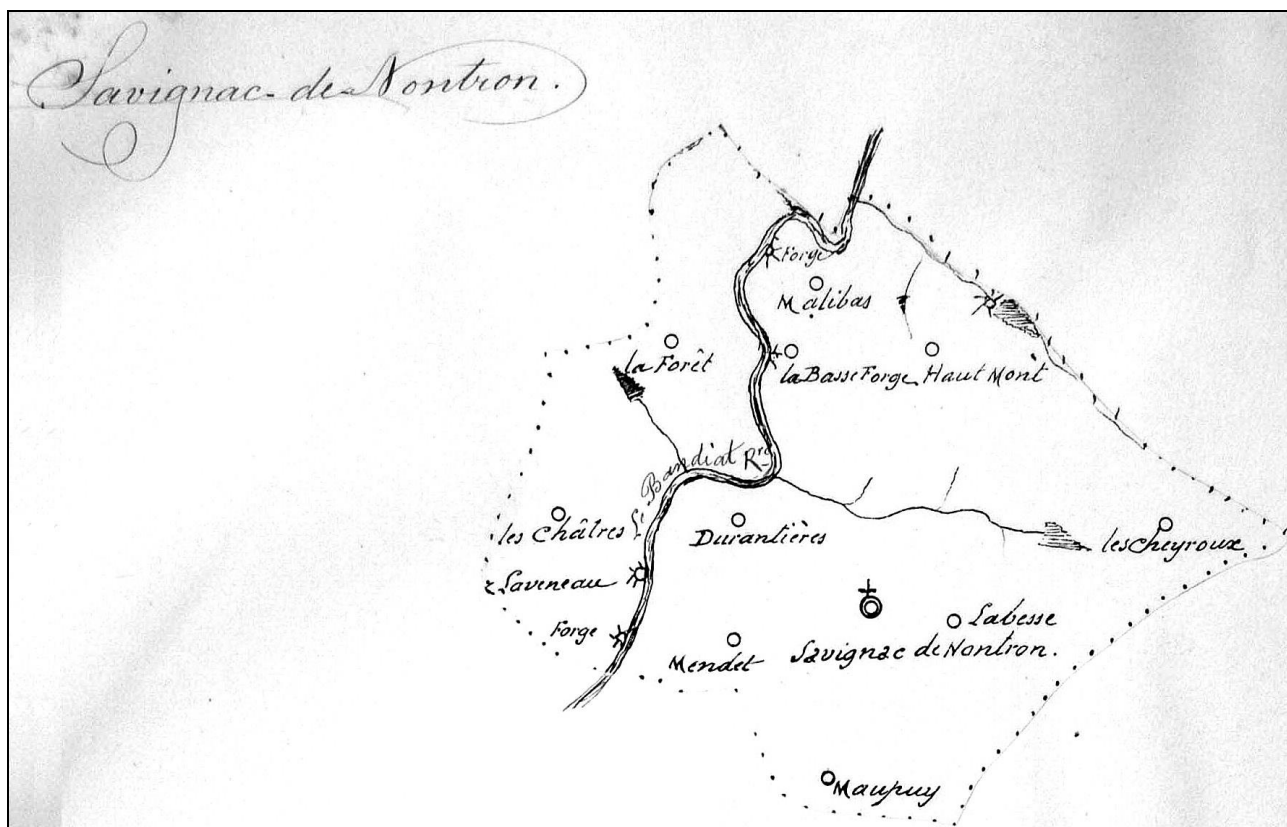 Savignac-de-Nontron.
Forge
Malibas
la Forêt
la Basse Forge
Haut Mont
le Bandiat Rre
les Châtres
Durantières
les Cheyroux
Laveneau
Forge
Labesse
Mendet
Savignac de Nontron.
Maupuy